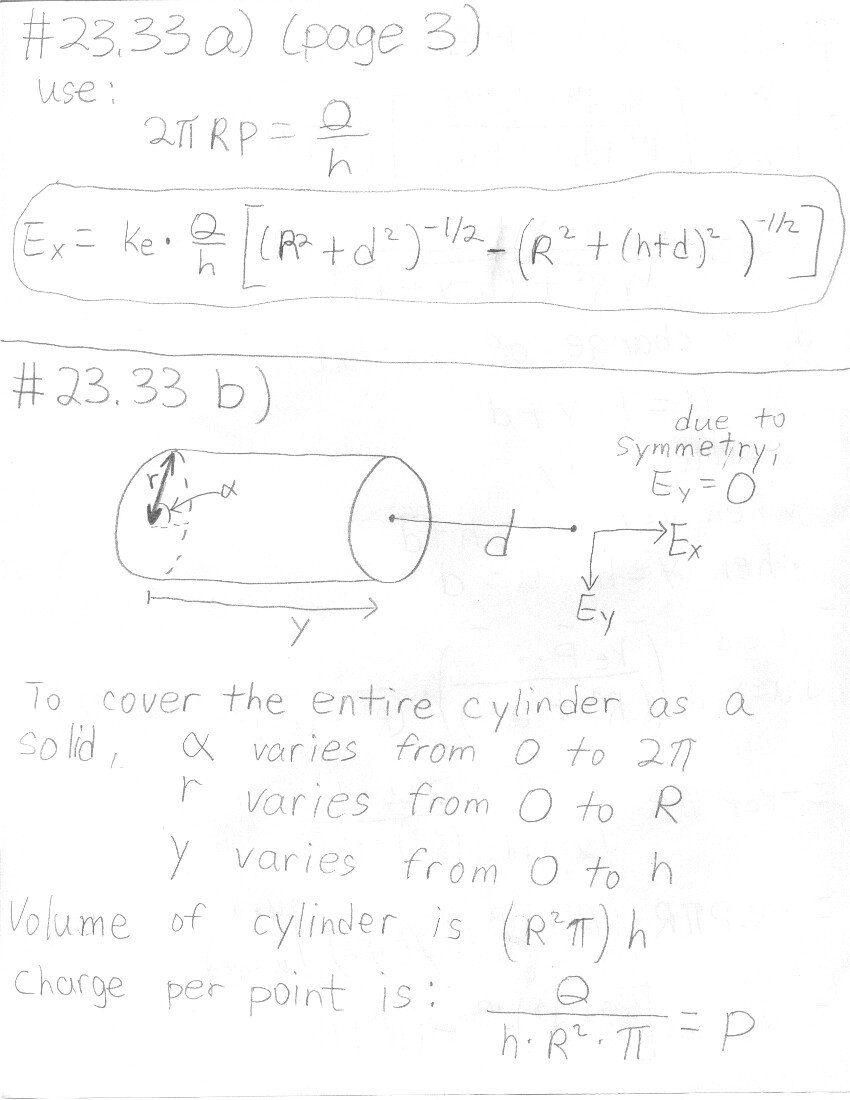 #23.33 a) (page 3)
use:
2π R P = Q/h
Ex = ke · Q/h [(R² + d²)^-1/2 - (R² + (h+d)²)^-1/2]
#23.33 b)
due to
symmetry,
Ey = 0
r
α
d
Ex
Ey
y
To cover the entire cylinder as a
solid, α varies from 0 to 2π
r varies from 0 to R
y varies from 0 to h
Volume of cylinder is (R²π) h
Charge per point is: Q/(h · R² · π) = P